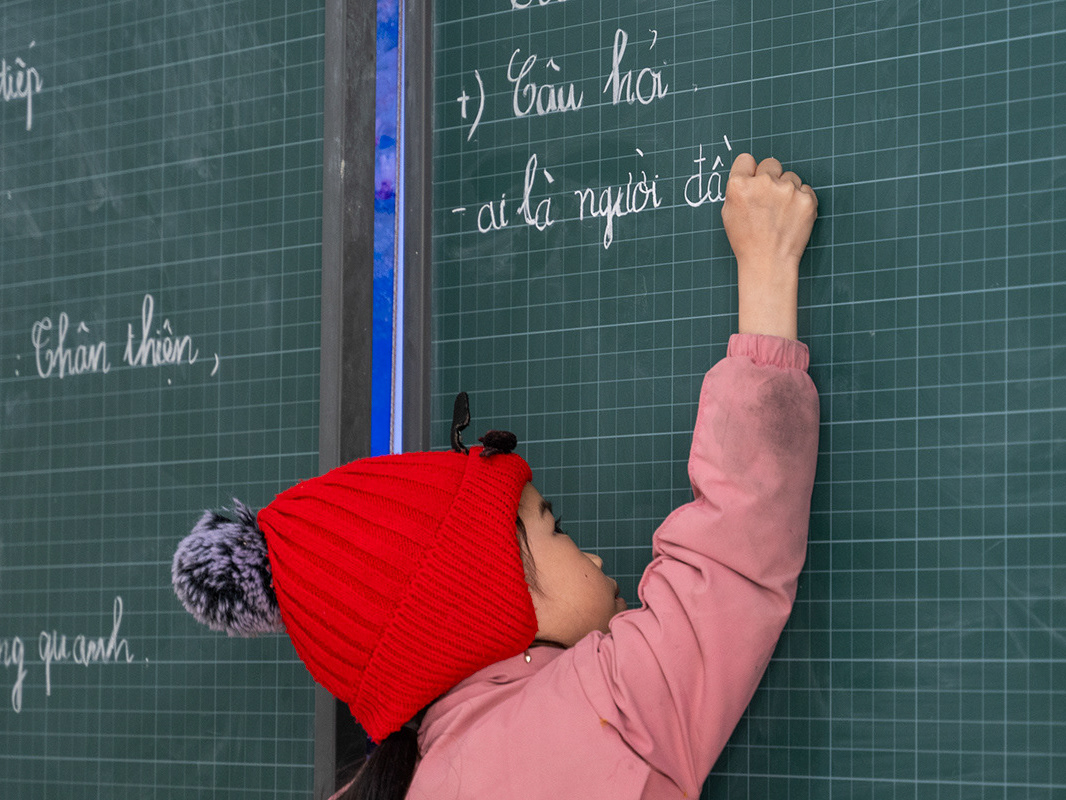 tiếp
: Thân thiện,
ng quanh.
+) Câu hỏi.
- ai là người đầ